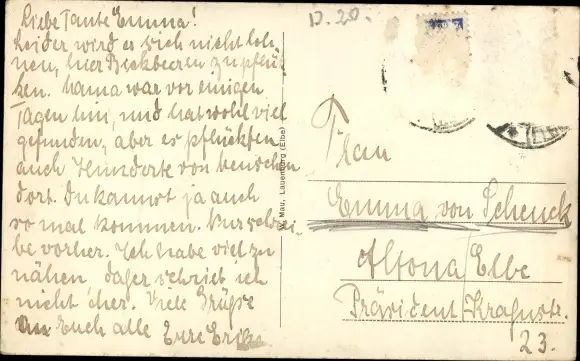 Liebe Tante Emma!
Leider wird es sich nicht loh
nen, hier Bickbeeren zu pflük
ken. Mama war vor einigen
Tagen hin, und hat wohl viel
gefunden, aber es pflückten
auch Hunderte von Menschen
dort. Du kannst ja auch
so mal kommen. Nur schrei
be vorher. Ich habe viel zu
nähen, daher schrieb ich
nicht eher. Viele Grüße
an Euch alle Eure
D. 20.
Mau, Lauenburg (Elbe)
Frau
Emma von Schenck
Altona Elbe
Präsident Krahnstr.
23.